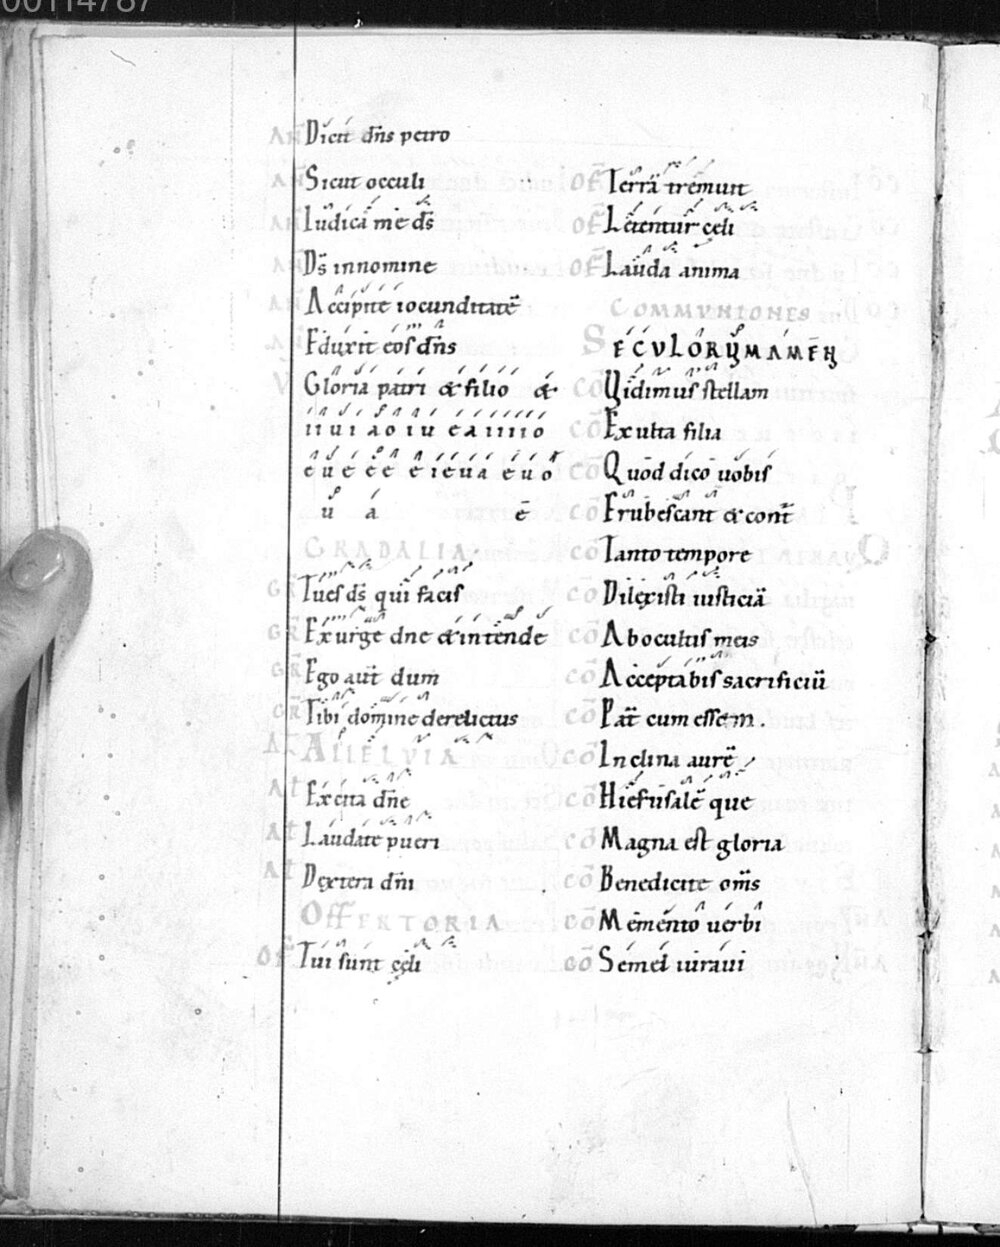 00114787
AÑ Dicit dñs petro
AÑ Sicut occuli
AÑ Iudica me ds̄
AÑ Ds̄ innomine
AÑ Accipite iocunditatē
Eduxit eos dñs
V Gloria patri & filio &
ii ui ao iu ea iiiio
e u e e e e i e u a e u o
u a ē
GRADALIA
GR̄ Tu es ds̄ qui facis
GR̄ Exurge dne & intende
GR̄ Ego aut̄ dum
GR̄ Tibi domine derelictus
ALLELVIA
At Excita dñe
At Laudate pueri
At Dextera dñi
OFFERTORIA
OF Tui sunt cęli
OF Terra tremuit
OF Lętentur cęli
OF Lauda anima
COMMVNIONES
SECVLORVM AMEN
CŌ Vidimus stellam
CŌ Exulta filia
CŌ Quod dico uobis
CŌ Erubescant & cont̄
CŌ Tanto tempore
CŌ Dilexisti iusticiā
CŌ Ab ocultis meis
CŌ Acceptabis sacrificiū
CŌ Pat̄ cum essem.
CŌ Inclina aurē
CŌ Hierusalē que
CŌ Magna est gloria
CŌ Benedicite om̄s
CŌ Memento uerbi
CŌ Semel iuraui